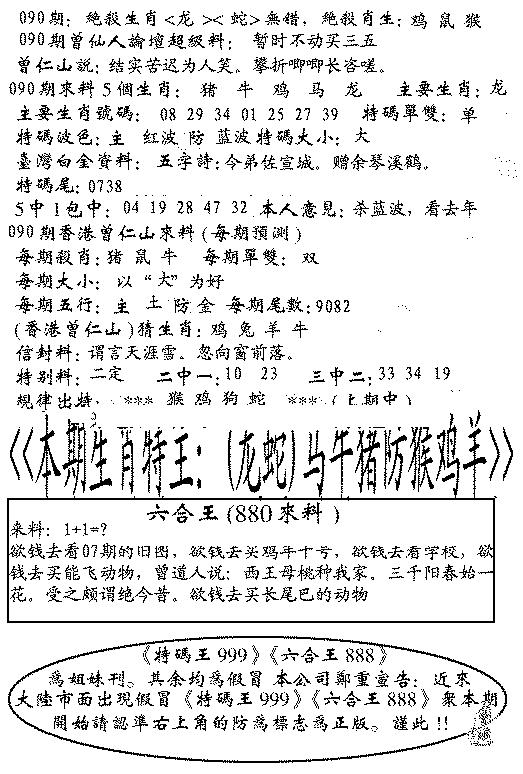 090期: 絶殺生肖<龙 ><蛇>無错，絶殺肖生: 鸡 鼠 猴
090期曾仙人論壇超級料: 暂时不动买三五
曾仁山説: 结实苦迟为人笑。攀折唧唧长咨嗟。
090期來料5個生肖: 猪 牛 鸡 马 龙 主要生肖: 龙
主要生肖號碼: 08 29 34 01 25 27 39 特碼單雙: 单
特碼波色: 主 红波 防 蓝波 特碼大小: 大
臺灣白金資料: 五字詩: 令弟佐宣城。赠余琴溪鹤。
特碼尾: 0738
5中1包中: 04 19 28 47 32 本人意見: 杀蓝波，看去年
090期香港曾仁山來料(每期預測)
每期殺肖: 猪 鼠 牛 每期單雙: 双
每期大小: 以“大”为好
每期五行: 主 土 防 金 每期尾數: 9082
(香港曾仁山)猜生肖: 鸡 兔 羊 牛
信封料: 谓言天涯雪。忽向窗前落。
特别料: 二定 二中一: 10 23 三中二: 33 34 19
規律出特: *** 猴 鸡 狗 蛇 *** (上期中)
《本期生肖特王: (龙蛇)马牛猪防猴鸡羊》
六合王(880來料)
来料: 1+1=?
欲钱去看07期的旧图，欲钱去买鸡年十号，欲钱去看学校，欲
钱去买能飞动物，曾道人说: 西王母桃种我家。三千阳春始一
花。受之颇谓绝今昔。欲钱去买长尾巴的动物
《特碼王999》《六合王888》
為姐妹刊。其余均為假冒 本公司鄭重宣告: 近來
大陸市面出現假冒《特碼王999》《六合王888》衆本期
開始請認準右上角的防為標志為正版。謹此!!